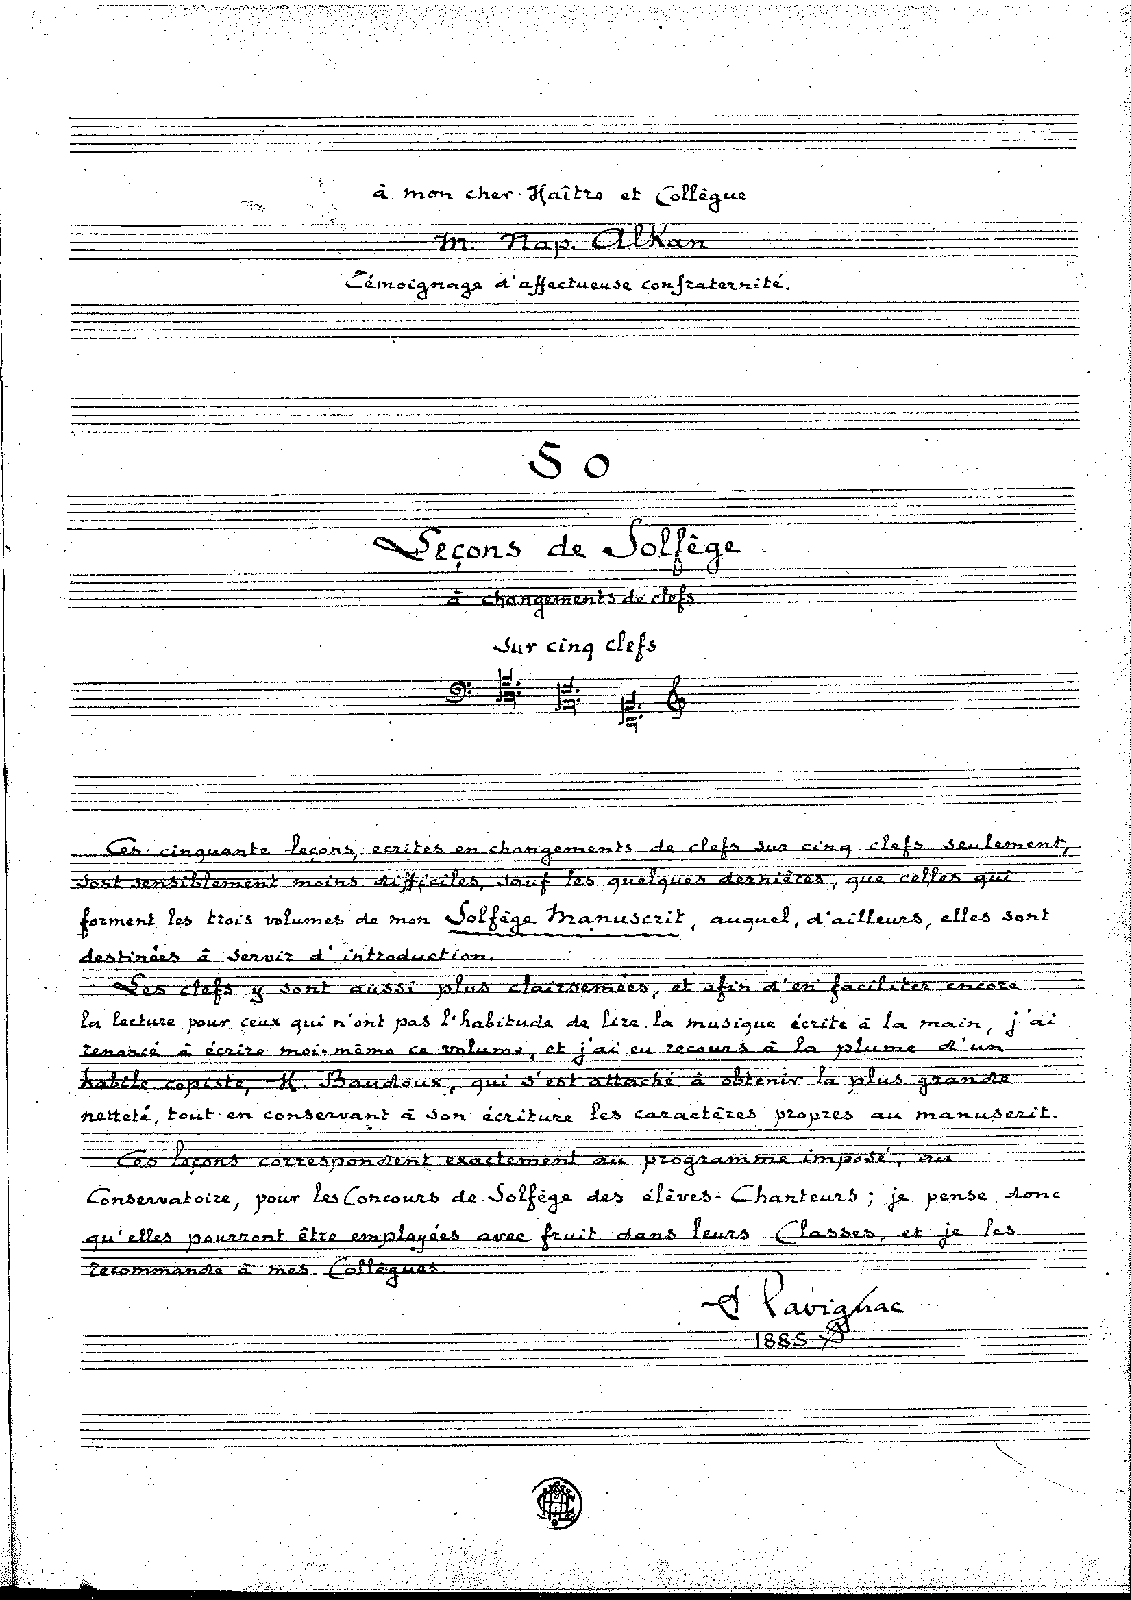 à mon cher Maître et Collègue
M. Nap. Alkan
Témoignage d'affectueuse confraternité.
50
Leçons de Solfège
à changements de clefs
sur cinq clefs
Ces cinquante leçons, écrites en changements de clefs sur cinq clefs seulement,
sont sensiblement moins difficiles, sauf les quelques dernières, que celles qui
forment les trois volumes de mon Solfège Manuscrit, auquel, d'ailleurs, elles sont
destinées à servir d'introduction.
Les clefs y sont aussi plus clairsemées, et afin d'en faciliter encore
la lecture pour ceux qui n'ont pas l'habitude de lire la musique écrite à la main, j'ai
renoncé à écrire moi-même ce volume, et j'ai eu recours à la plume d'un
habile copiste, M. Baudoux, qui s'est attaché à obtenir la plus grande
netteté, tout en conservant à son écriture les caractères propres au manuscrit.
Ces leçons correspondent exactement au programme imposé, au
Conservatoire, pour les Concours de Solfège des élèves-Chanteurs; je pense donc
qu'elles pourront être employées avec fruit dans leurs Classes, et je les
recommande à mes Collègues
A Lavignac
1885